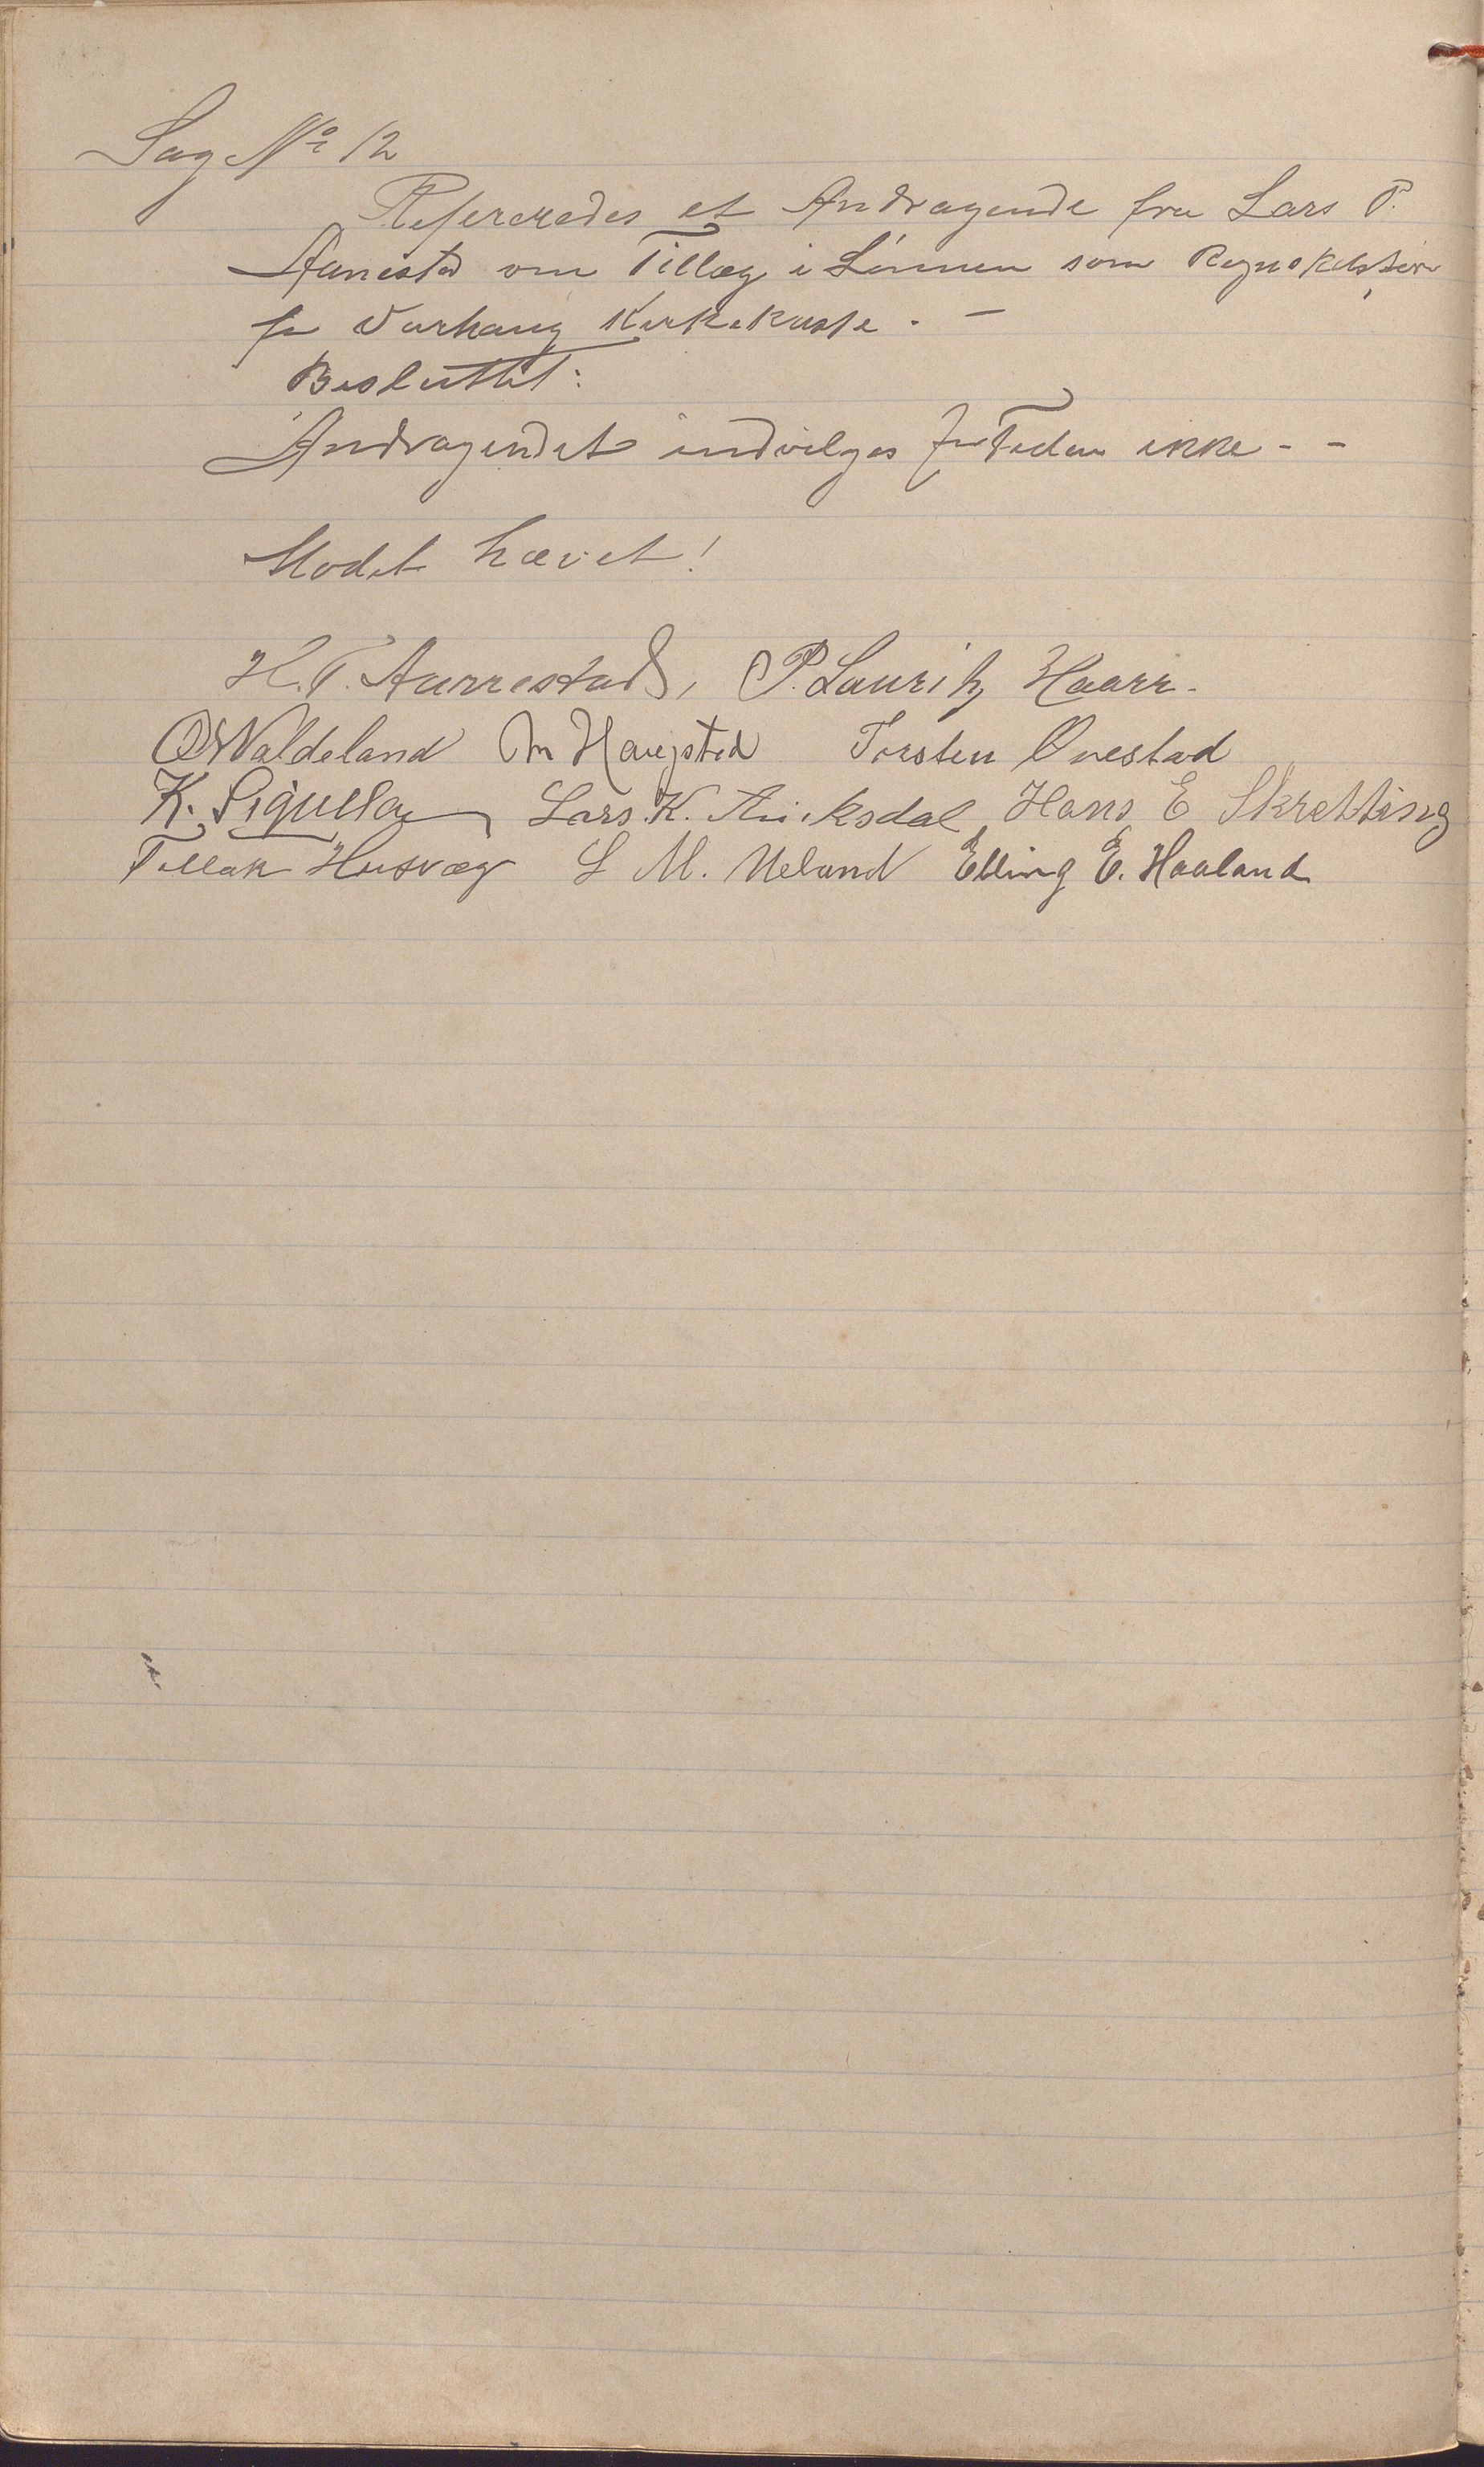 Sag No 12
Refereredes et Andragende fra Lars P.
Aanestad om Tillæg i Lønnen som Regnskabsfører
for Varhaug Kirkekasse. -
Besluttet:
Andragendet indvilges for Tiden ikke - -
Modet hævet!
H. T. Aarrestad, P. Lauritz Haarr.
O Waldeland M Haugstad Torsten Ovestad
K. Lars K. Auksdal Hans E Skretting
Tollak Husvæg L M. Ueland Elling E. Haaland